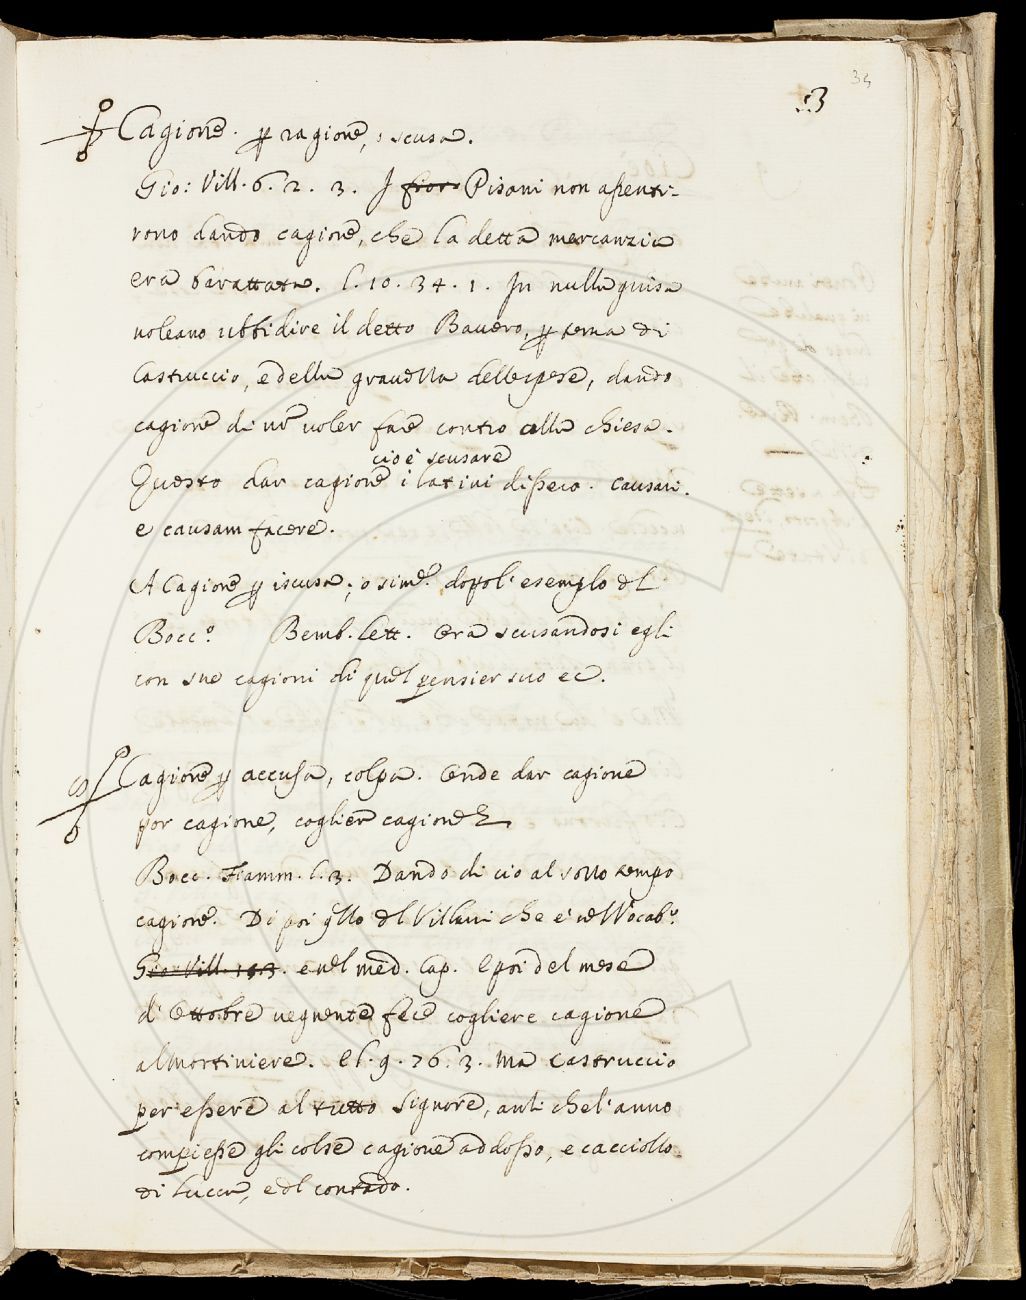 34
23
Cagione. ꝑ ragione, o scusa.
Gio: Vill. 6. 2. 3. I Pisani non assenti-
rono dando cagione, che la detta mercanzia
era barattata. l. 10. 34. 1. In nulla guisa
voleano ubbidire il detto Bavero, ꝑ tema di
Castruccio, e della gravezza delle spese, dando
cagione di nō voler fare contro alla chiesa.
cioè scusare
Questo dar cagione i latini dissero. causari.
e causam facere.
A Cagione ꝑ iscusa; o sim.e dopo l'esempio del
Bocc.o Bemb. lett. Era scusandosi egli
con sue cagioni di quel pensier suo ec.
Cagione ꝑ accusa, colpa. Onde dar cagione
por cagione, coglier cagione
Bocc. Fiamm. l. 3. Dando di cio al sotto tempo
cagione. Di poi q̃llo del Villani che è nel Vocab.o
Gio: Vill. e nel med. Cap. E poi del mese
di Ottobre vegnente fece cogliere cagione
al Mortiniere. E l. 9. 76. 3. Ma Castruccio
per essere al tutto Signore, anti che l'anno
compiesse gli colse cagione addosso, e cacciollo
di Lucca, e del contado.